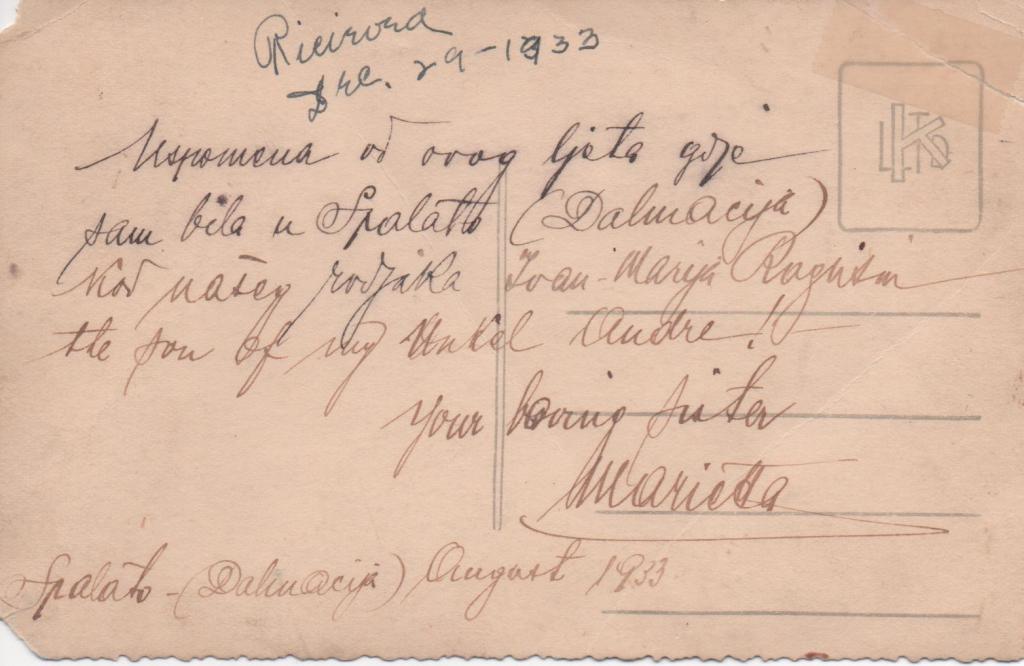 Ricivora
Dec. 29-1933
Uspomena od ovog ljeta gdje
sam bila u Spalato (Dalmacija)
kod našeg rodjaka Ivan-Marija Ragusin
the son of my Unkel Andre!
your loving sister
Marietta
Spalato-(Dalmacija) August 1933